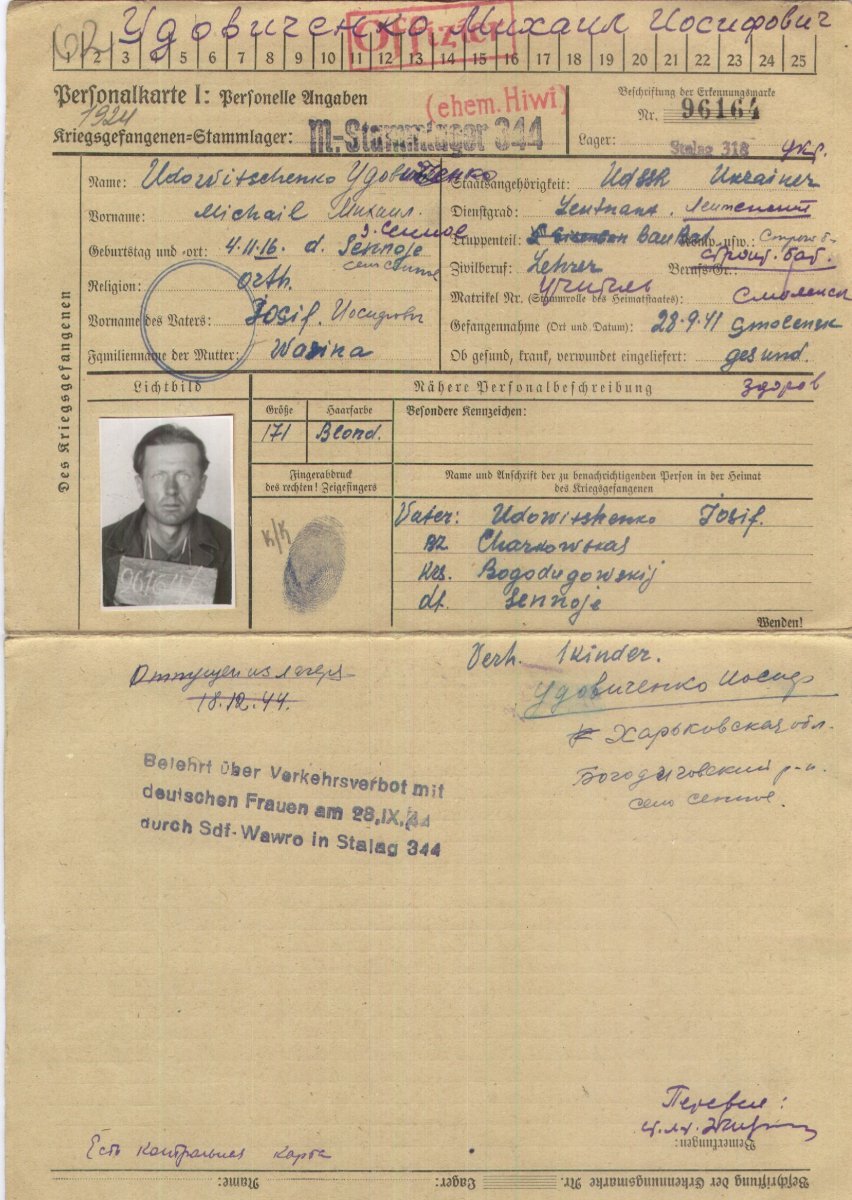 Удовиченко Михаил Иосифович
Offizier
1 2 3 4 5 6 7 8 9 10 11 12 13 14 15 16 17 18 19 20 21 22 23 24 25
Personalkarte I: Personelle Angaben
(ehem. Hiwi)
Beschriftung der Erkennungsmarke
Nr. 96164
1924
Kriegsgefangenen-Stammlager: M.-Stammlager 344
Lager: Stalag 318
укр.
Des Kriegsgefangenen
Name: Udowitschenko Удовиченко
Vorname: Michail Михаил.
с. Сенное
Geburtstag und -ort: 4.11.16. d. Sennoje
село Сенное
Religion: orth.
Vorname des Vaters: Josif. Иосифович
Familienname der Mutter:
Staatsangehörigkeit: UdSSR Ukrainer
Dienstgrad: Leutnant. Лейтенант
Truppenteil: BauBat Komp. usw.:
строит. бат.
Zivilberuf: Lehrer Berufs-Gr.:
Учитель
Matrikel Nr. (Stammrolle des Heimatstaates):
Смоленск
Gefangennahme (Ort und Datum): 28.9.41 Smolensk
Ob gesund, krank, verwundet eingeliefert: gesund.
здоров
Lichtbild
Nähere Personalbeschreibung
Größe Haarfarbe Besondere Kennzeichen:
171 Blond.
Fingerabdruck
des rechten! Zeigefingers
Name und Anschrift der zu benachrichtigenden Person in der Heimat
des Kriegsgefangenen
К/К
Vater: Udowitshenko Josif.
Charkowskaj
Bogodugowskij
df. Sennoje
Wenden!
Отпущен из лагеря
18.12.44.
Verh. 1 Kinder.
Удовиченко Иосиф
Харьковская обл.
Богодуховский р-н.
село Сенное.
Belehrt über Verkehrsverbot mit
deutschen Frauen am 28.IX.44
durch Sdf-Wawro in Stalag 344
Перевел:
Bemerkungen:
Есть контрольная карта
Beschriftung der Erkennungsmarke Nr. Lager: Name: